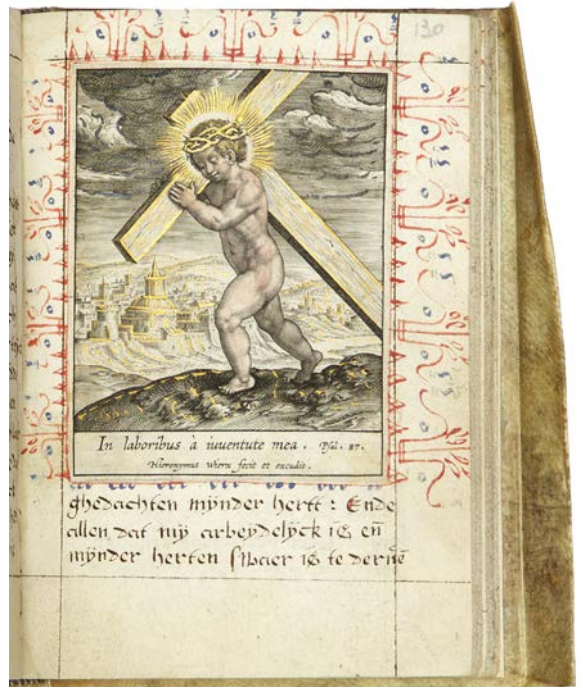 130
In laboribus à iuuentute mea. Psal. 87.
Hieronymus Wierx fecit et excudit.
ghedachten mÿnder hertt: Ende
allen dat mÿ arbeydelÿck is en̄
mÿnder herten swaer is te deruē